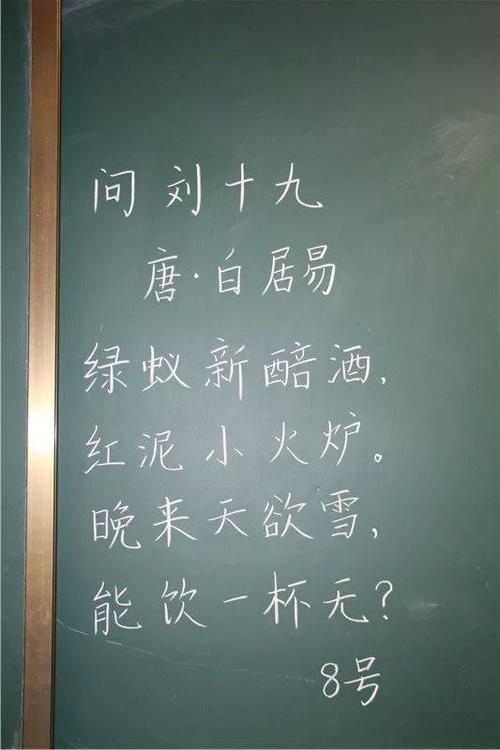 问刘十九
唐·白居易
绿蚁新醅酒，
红泥小火炉。
晚来天欲雪，
能饮一杯无？
8号